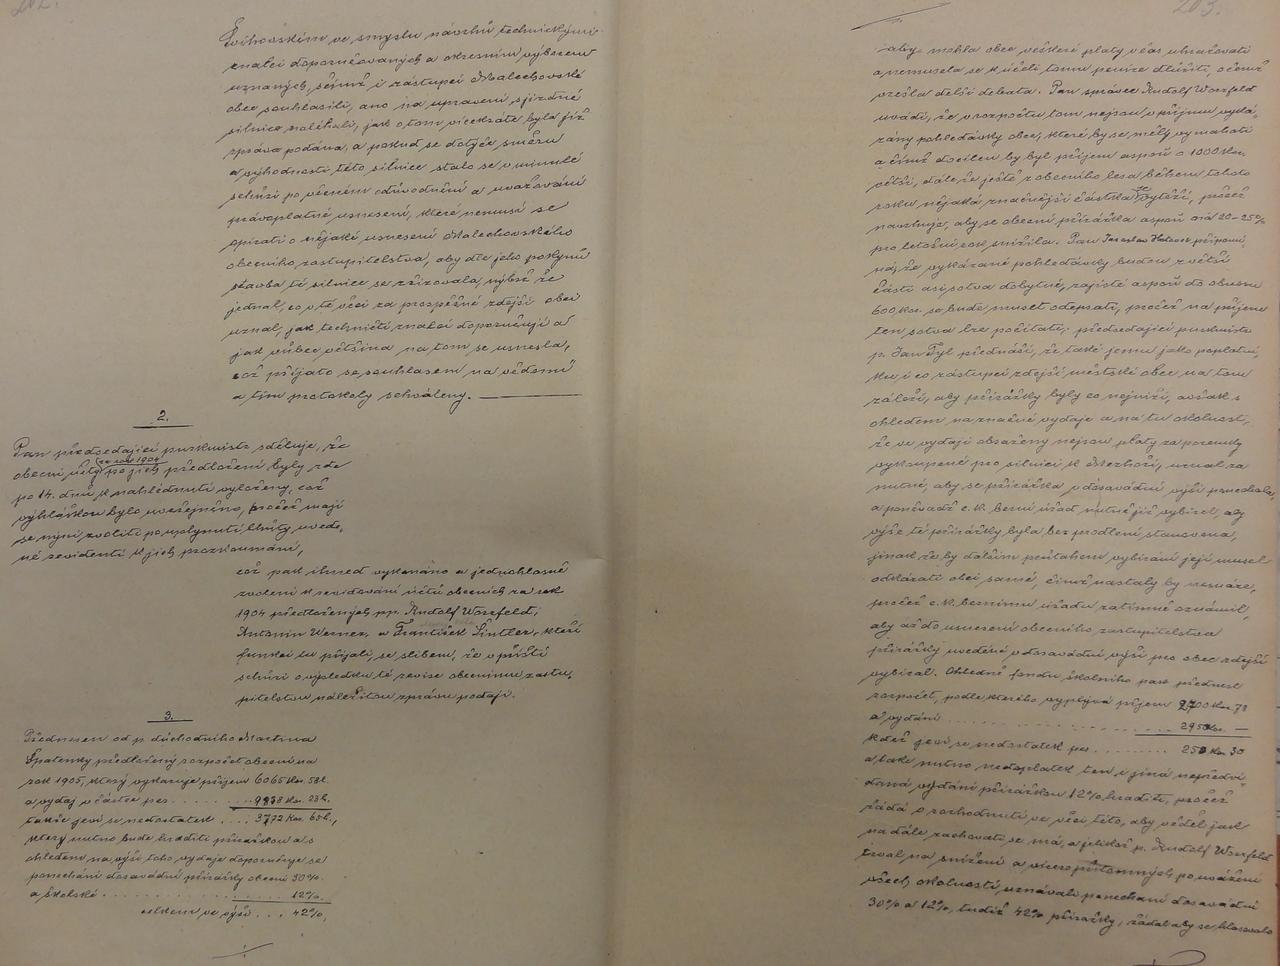 202.
Švihovském ve smyslu návrhů technickými
znalci doporučovaných a okresním výborem
uznaných, s čímž i zástupci Malechovské
obce souhlasili, ano na upravení sjízdné
silnice naléhali, jak o tom vícekráte byla již
zpráva podána, a pokud se dotýče směru
a výhodnosti této silnice stalo se v minulé
schůzi po věcném odůvodnění a uvažování
právoplatné usnesení, které nemusí se
opírati o nějaké usnesení Malechovského
obecního zastupitelstva, aby dle jeho pokynů
stavba té silnice se zřizovala, nýbrž že
jednal, co v té věci za prospěšné zdejší obci
uznal, jak techničtí znalci doporučují a
jak vůbec většina na tom se usnesla,
což přijato se souhlasem na vědomí
a tím protokoly schváleny.
2.
Pan předsedající purkmistr sděluje, že
obecní účty za rok 1904 po jich předložení byly zde
po 14. dnů k nahlédnutí vyloženy, což
vyhláškou bylo uveřejněno, pročež mají
se nyní zvoliti po uplynutí lhůty uvede-
né revidenti k jich prozkoumání,
což pak ihned vykonáno a jednohlasně
zvoleni k revidování účtů obecních za rok
1904 předložených pp. Rudolf Worzfeld,
Antonín Werner, a František Šintler, kteří
funkci tu přijali, se slibem, že v příští
schůzi o výsledku té revise obecnímu zastu-
pitelstvu náležitou zprávu podají.
3.
Přednesen od p. důchodního Martina
Špatenky předložený rozpočet obecní na
rok 1905, který vykazuje příjem 6065 Kor. 58 h.
a výdaj v částce per. . . . . . . . . 9838 Kor. 23 h.
takže jeví se nedostatek . . . 3772 Kor. 65 h.,
který nutno bude hraditi přirážkou a s
ohledem na výši toho výdaje doporučuje se
ponechání dosavadní přirážky obecní 30%.
a školské . . . . . . . . . . . . . . . 12%.
celkem ve výši . . . 42%,
203.
aby mohla obec veškeré platy včas uhražovati
a nemusela se k účeli tomu peníze dlužiti, o čemž
vzešla delší debata. Pan správce Rudolf Worzfeld
uvádí, že v rozpočtu tom nejsou v příjmu vyká-
zány pohledávky obce, které by se měly vymáhati
a čímž docílen by byl příjem aspoň o 1000 Kor.
větší, dále že ještě z obecního lesa během tohoto
roku nějaká značnější částka se vytěží, pročež
navrhuje, aby se obecní přirážka aspoň na 20-25%
pro letošní rok snížila. Pan Jaroslav připomí-
ná, že vykázané pohledávky budou z větší
části asi sotva dobytné, zajisté aspoň do obnosu
600 Kor. se bude muset odepsati, pročež na příjem
ten sotva lze počítati; předsedající purkmistr
p. Jan Tyl přednáší, že také jemu jako poplatní-
ku i co zástupci zdejší městské obce na tom
záleží, aby přirážky byly co nejnižší, avšak s
ohledem na značné výdaje a na tu okolnost,
že ve výdaji obsaženy nejsou platy za pozemky
vykoupené pro silnici k Mezhoří, uznal za
nutné, aby se přirážka v dosavadní výši ponechala,
a poněvadž c. k. berní úřad nutně již vybírat, aby
výše té přirážky byla bez prodlení stanovena,
jinak že by dalším průtahem vybírání její musel
odkázati obci samé, čímž nastaly by nesnáze,
pročež c. k. bernímu úřadu zatímně oznámil,
aby až do usnesení obecního zastupitelstva
přirážky uvedené v dosavadní výši pro obec zdejší
vybíral. Ohledně fondu školního pak přednesl
rozpočet, podle kterého vyplývá příjem 2700 Kor. 70
a vydání . . . . . . . . . . . . . . . . . . 2950 Kor. —
kdež jeví se nedostatek per. . . . . . . . . 250 Kor. 30
a také nutno nedoplatek ten i jiná nepředví-
daná vydání přirážkou 12% hraditi, pročež
žádá o rozhodnutí ve věci této, aby věděl jak
na dále zachovati se má, a jelikož p. Rudolf Worzfeld
trval na snížení a více přítomných po uvážení
všech okolností uznávali ponechání dosavadní
30% a 12%, tudíž 42% přirážky, žádal aby se hlasovalo